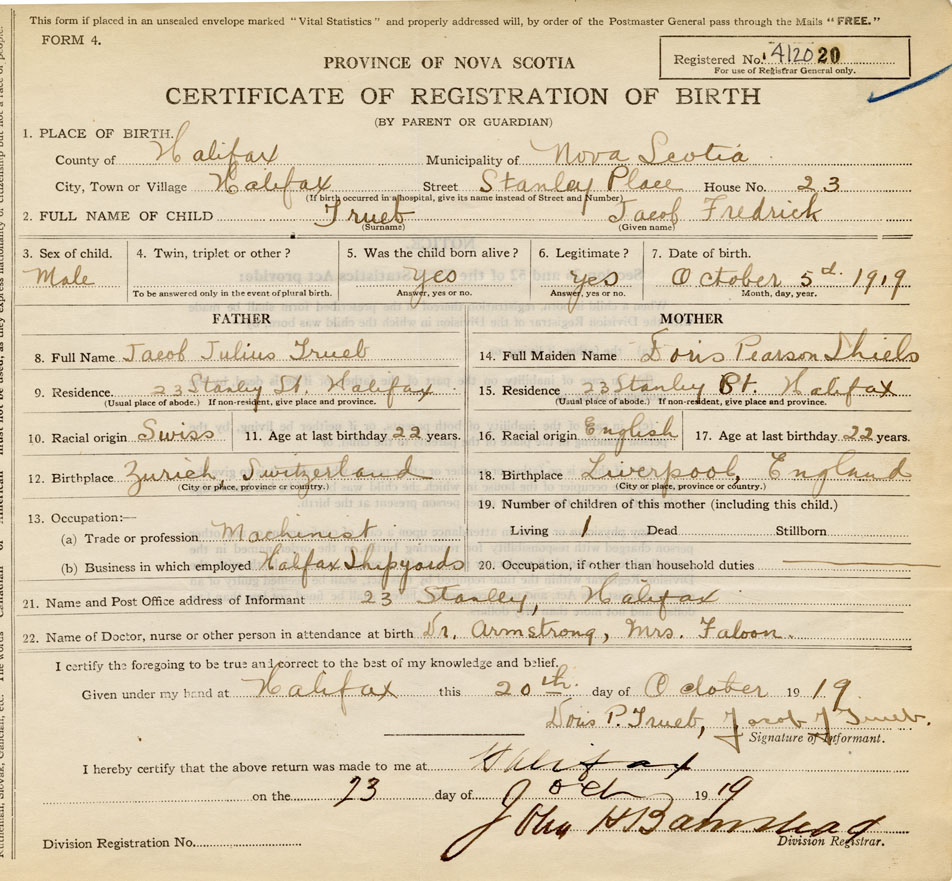 This form if placed in an unsealed envelope marked "Vital Statistics" and properly addressed will, by order of the Postmaster General pass through the Mails "FREE."
FORM 4.
Registered No. 412020
For use of Registrar General only.
PROVINCE OF NOVA SCOTIA
CERTIFICATE OF REGISTRATION OF BIRTH
(BY PARENT OR GUARDIAN)
1. PLACE OF BIRTH.
County of Halifax Municipality of Nova Scotia
City, Town or Village Halifax Street Stanley Place House No. 23
(If birth occurred in a hospital, give its name instead of Street and Number)
2. FULL NAME OF CHILD Trueb Jacob Fredrick
(Surname) (Given name)
3. Sex of child. 4. Twin, triplet or other? 5. Was the child born alive? 6. Legitimate? 7. Date of birth.
Male yes yes October 5d. 1919
To be answered only in the event of plural birth. Answer, yes or no. Answer, yes or no. Month, day, year.
FATHER MOTHER
8. Full Name Jacob Julius Trueb 14. Full Maiden Name Doris Pearson Shiels
9. Residence. 23 Stanley St. Halifax 15. Residence 23 Stanley Pt. Halifax
(Usual place of abode.) If non-resident, give place and province. (Usual place of abode.) If non-resident, give place and province.
10. Racial origin Swiss 11. Age at last birthday 22 years. 16. Racial origin English 17. Age at last birthday 22 years.
12. Birthplace Zurich, Switzerland 18. Birthplace Liverpool, England
(City or place, province or country.) (City or place, province or country.)
13. Occupation:— 19. Number of children of this mother (including this child.)
(a) Trade or profession Machinist Living 1 Dead Stillborn
(b) Business in which employed Halifax Shipyards 20. Occupation, if other than household duties
21. Name and Post Office address of Informant 23 Stanley, Halifax
22. Name of Doctor, nurse or other person in attendance at birth Dr. Armstrong, Mrs. Faloon.
I certify the foregoing to be true and correct to the best of my knowledge and belief.
Given under my hand at Halifax this 20th. day of October 1919.
Doris P. Trueb, Jacob J Trueb.
Signature of Informant.
I hereby certify that the above return was made to me at Halifax
on the 23 day of Oct 1919
John H Barnstead
Division Registration No. Division Registrar.